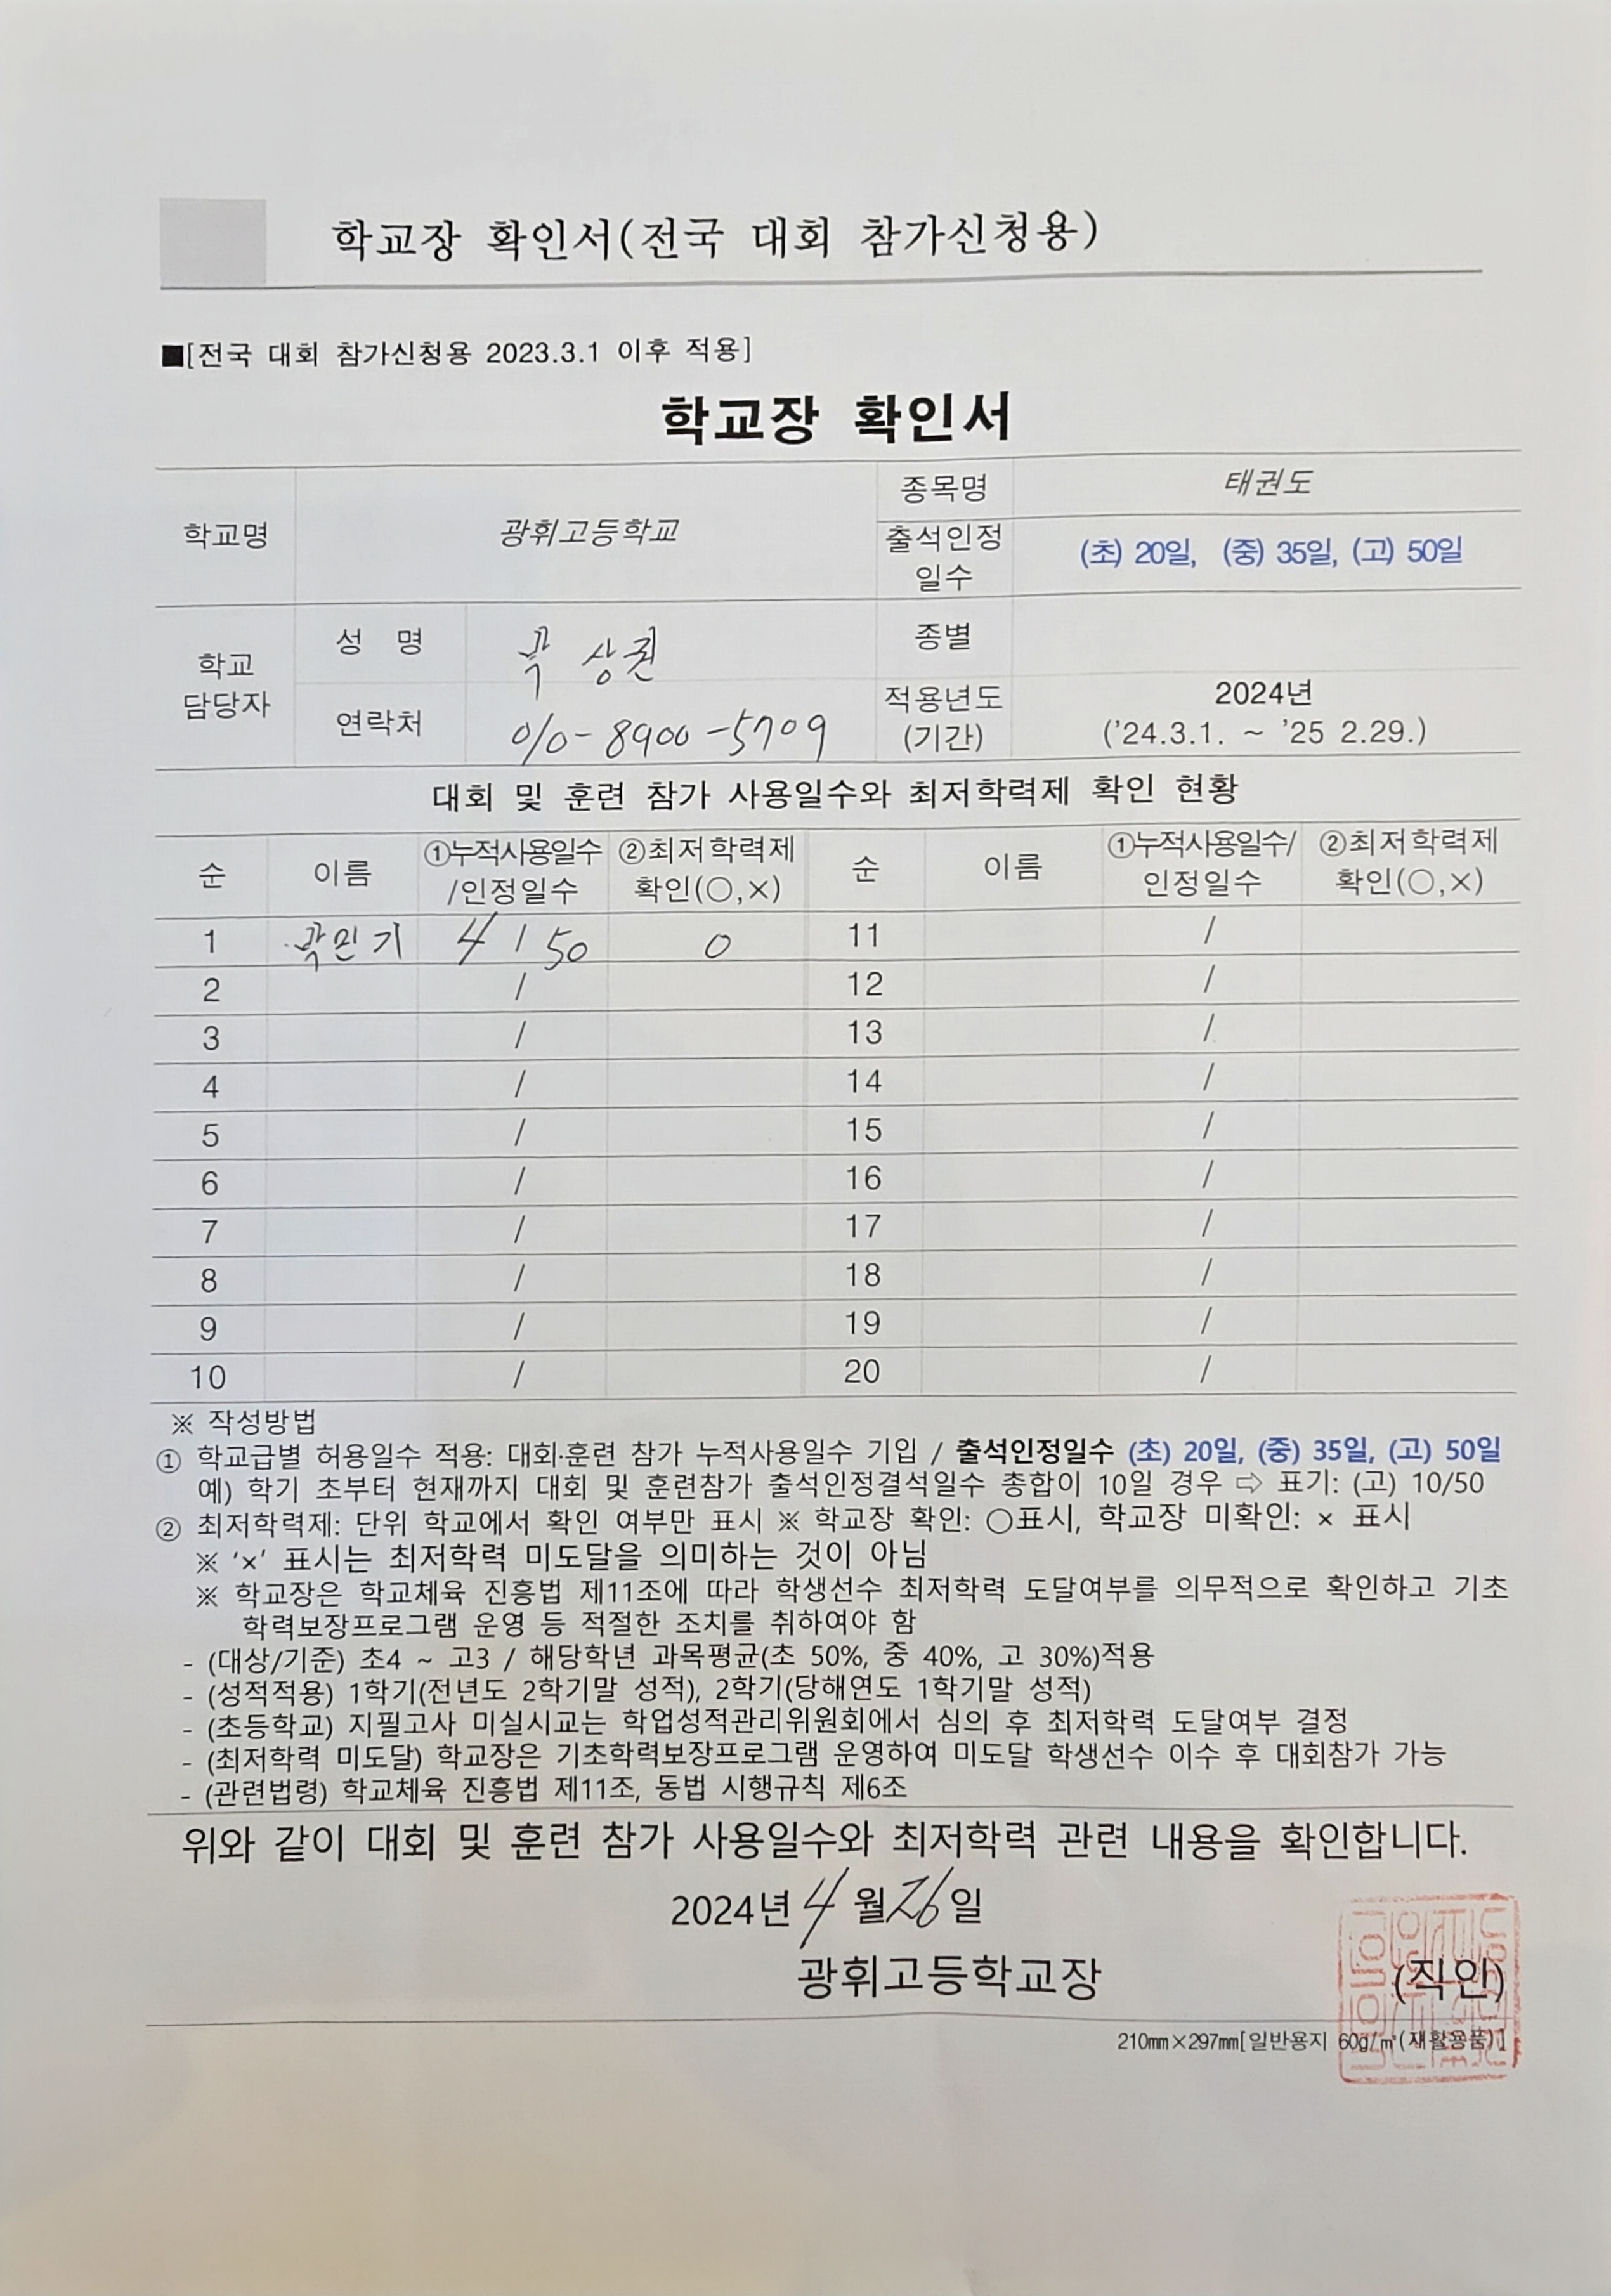 학교장 확인서(전국 대회 참가신청용)
■[전국 대회 참가신청용 2023.3.1 이후 적용]
학교장 확인서
학교명 광휘고등학교 종목명 태권도
출석인정 일수 (초) 20일, (중) 35일, (고) 50일
학교 담당자 성 명 상권 종별
연락처 010-8900-5709 적용년도 (기간) 2024년 ('24.3.1. ~ '25 2.29.)
대회 및 훈련 참가 사용일수와 최저학력제 확인 현황
순 이름 ①누적사용일수 /인정일수 ②최저학력제 확인(○,×) 순 이름 ①누적사용일수/ 인정일수 ②최저학력제 확인(○,×)
1 곽민기 4 / 50 0 11 /
2 / 12 /
3 / 13 /
4 / 14 /
5 / 15 /
6 / 16 /
7 / 17 /
8 / 18 /
9 / 19 /
10 / 20 /
※ 작성방법
① 학교급별 허용일수 적용: 대회·훈련 참가 누적사용일수 기입 / 출석인정일수 (초) 20일, (중) 35일, (고) 50일
예) 학기 초부터 현재까지 대회 및 훈련참가 출석인정결석일수 총합이 10일 경우 ⇨ 표기: (고) 10/50
② 최저학력제: 단위 학교에서 확인 여부만 표시 ※ 학교장 확인: ○표시, 학교장 미확인: × 표시
※ '×' 표시는 최저학력 미도달을 의미하는 것이 아님
※ 학교장은 학교체육 진흥법 제11조에 따라 학생선수 최저학력 도달여부를 의무적으로 확인하고 기초
학력보장프로그램 운영 등 적절한 조치를 취하여야 함
- (대상/기준) 초4 ~ 고3 / 해당학년 과목평균(초 50%, 중 40%, 고 30%)적용
- (성적적용) 1학기(전년도 2학기말 성적), 2학기(당해연도 1학기말 성적)
- (초등학교) 지필고사 미실시교는 학업성적관리위원회에서 심의 후 최저학력 도달여부 결정
- (최저학력 미도달) 학교장은 기초학력보장프로그램 운영하여 미도달 학생선수 이수 후 대회참가 가능
- (관련법령) 학교체육 진흥법 제11조, 동법 시행규칙 제6조
위와 같이 대회 및 훈련 참가 사용일수와 최저학력 관련 내용을 확인합니다.
2024년 4월 26일
광휘고등학교장 (직인)
210㎜×297㎜[일반용지 60g/㎡(재활용품)]